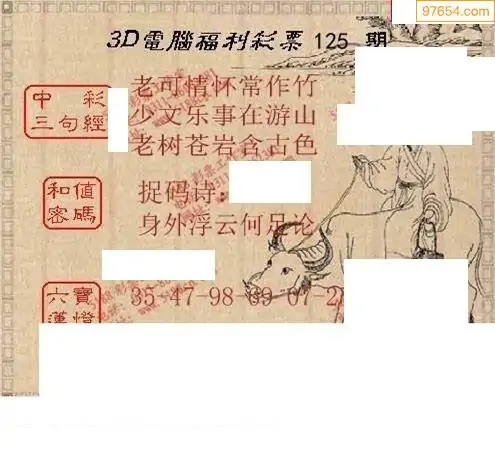 97654.com
3D電腦福利彩票 125 期
中彩
三句經
老可情怀常作竹
少文乐事在游山
老树苍岩含古色
和值
密碼
捉码诗:
身外浮云何足论
六寶
35-47-98-69-07-2